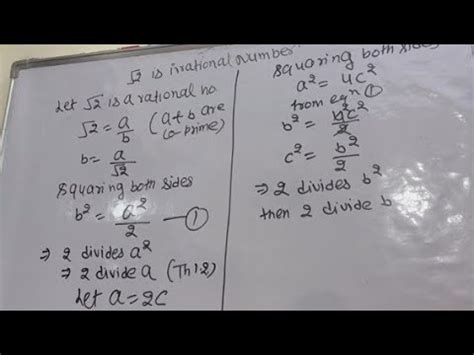 √2 is irrational number
Let √2 is a rational no
√2 = a/b (a+b are
co-prime)
b = a/√2
Squaring both sides
b² = a²/2 —①
⇒ 2 divides a²
⇒ 2 divide a (Th 1.2)
Let a = 2c
squaring both sides
a² = 4c²
from eqn ①
b² = 4c²/2
c² = b²/2
⇒ 2 divides b²
then 2 divide b